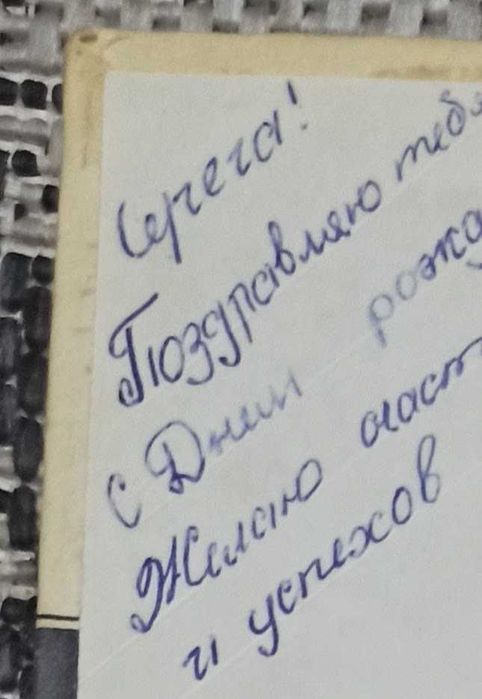 Серега!
Поздравляю тебя
с Днем рожд
Желаю счаст
и успехов